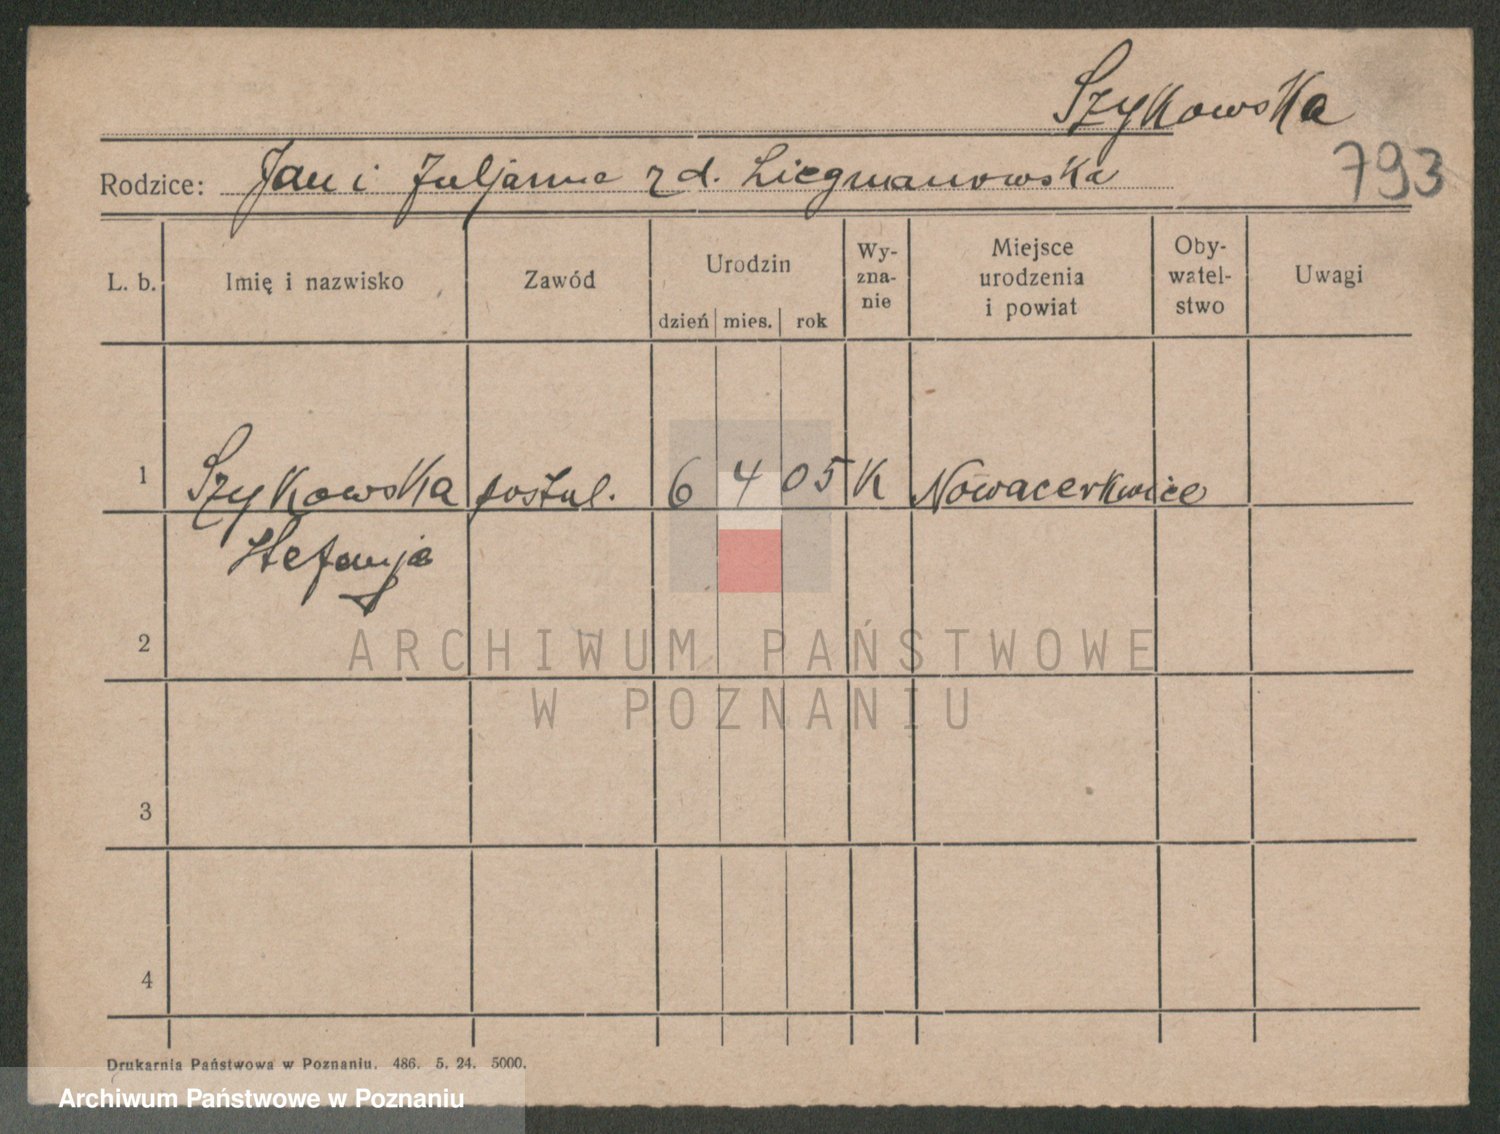 Szykowska
793
Rodzice: Jan i Juljanna zd. Liegmanowska
L. b. Imię i nazwisko Zawód Urodzin Wy-
zna-
nie Miejsce
urodzenia
i powiat Oby-
watel-
stwo Uwagi
dzień mies. rok
1 Szykowska postul. 6 4 05 K Nowacerkwice
Stefanja
2
ARCHIWUM PAŃSTWOWE
W POZNANIU
3
4
Drukarnia Państwowa w Poznaniu. 486. 5. 24. 5000.
Archiwum Państwowe w Poznaniu